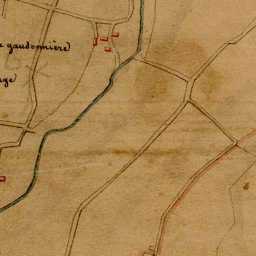 e gaudonnière
age